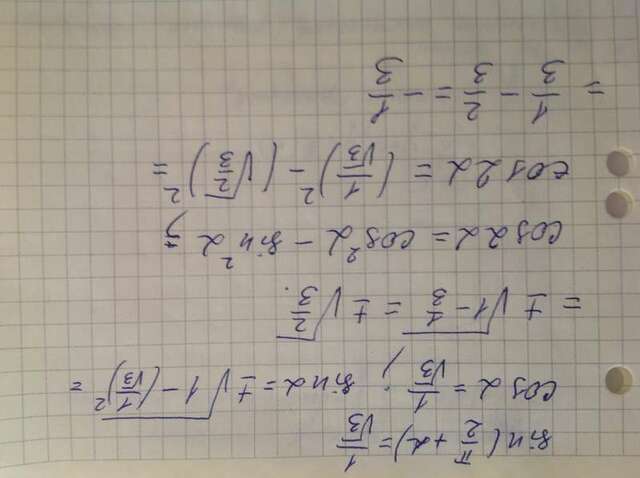 sin(π/2 + α) = 1/√3
cos α = 1/√3 ; sin α = ± √(1 − (1/√3)²) =
= ± √(1 − 1/3) = ± √(2/3).
cos 2α = cos²α − sin²α ;
cos 2α = (1/√3)² − (√(2/3))² =
= 1/3 − 2/3 = − 1/3